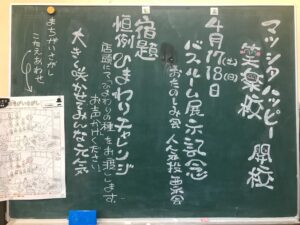 マツシタハッピー
笑楽校 開校
4月17(土)18日(日)
バスルーム展示記念
おたのしみ会 人気投票会
宿題
恒例ひまわりチャレンジ
店頭にて、ひまわりの種をお渡しします。
おまかけください。
大きく咲かそみんな元気
まちがいさがし
こたえあわせ